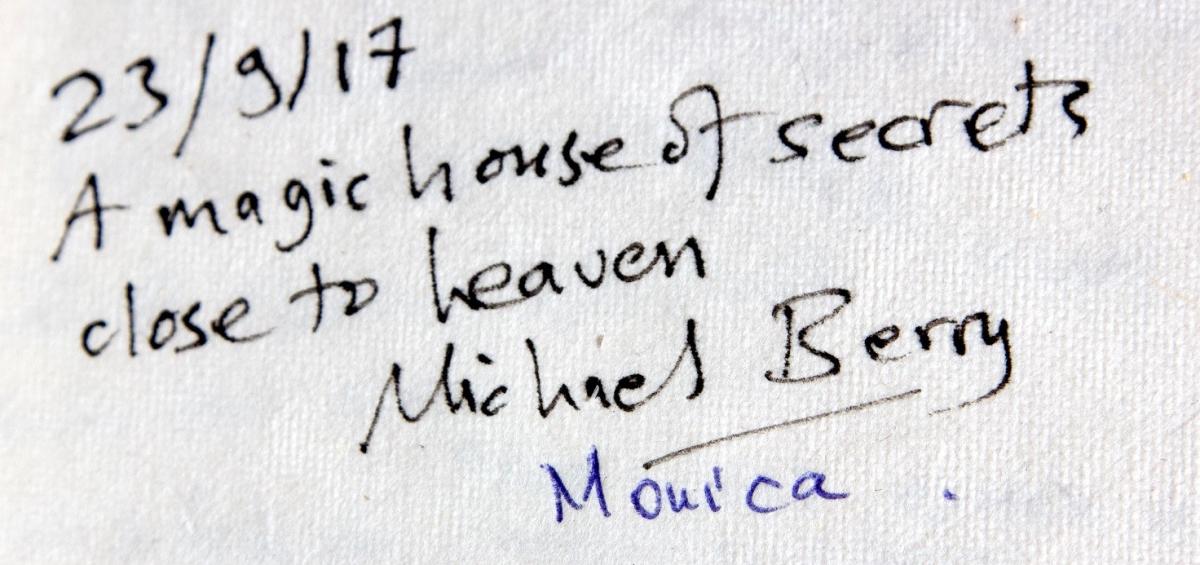 23/9/17
A magic house of secrets
close to heaven
Michael Berry
Monica .